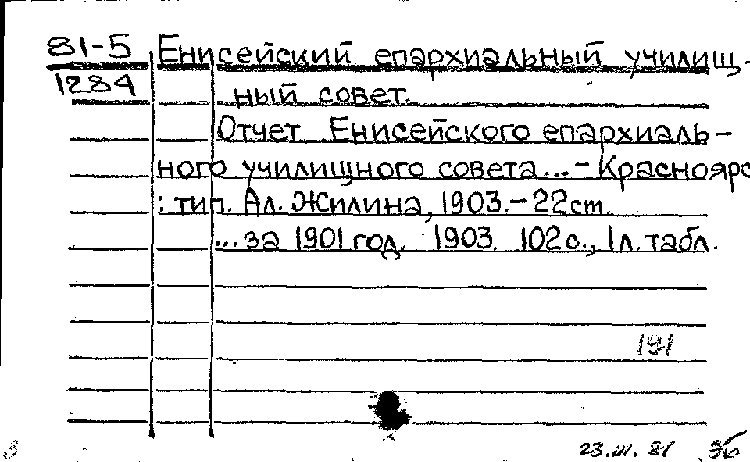 81-5 Енисейский епархиальный училищ-
1284 ный совет.
Отчет Енисейского епархиаль-
ного училищного совета...-Краснояро
: тип. Ал. Жилина, 1903.-22cm.
...за 1901 год. 1903. 102с., 1л. табл.
191
23.III.81